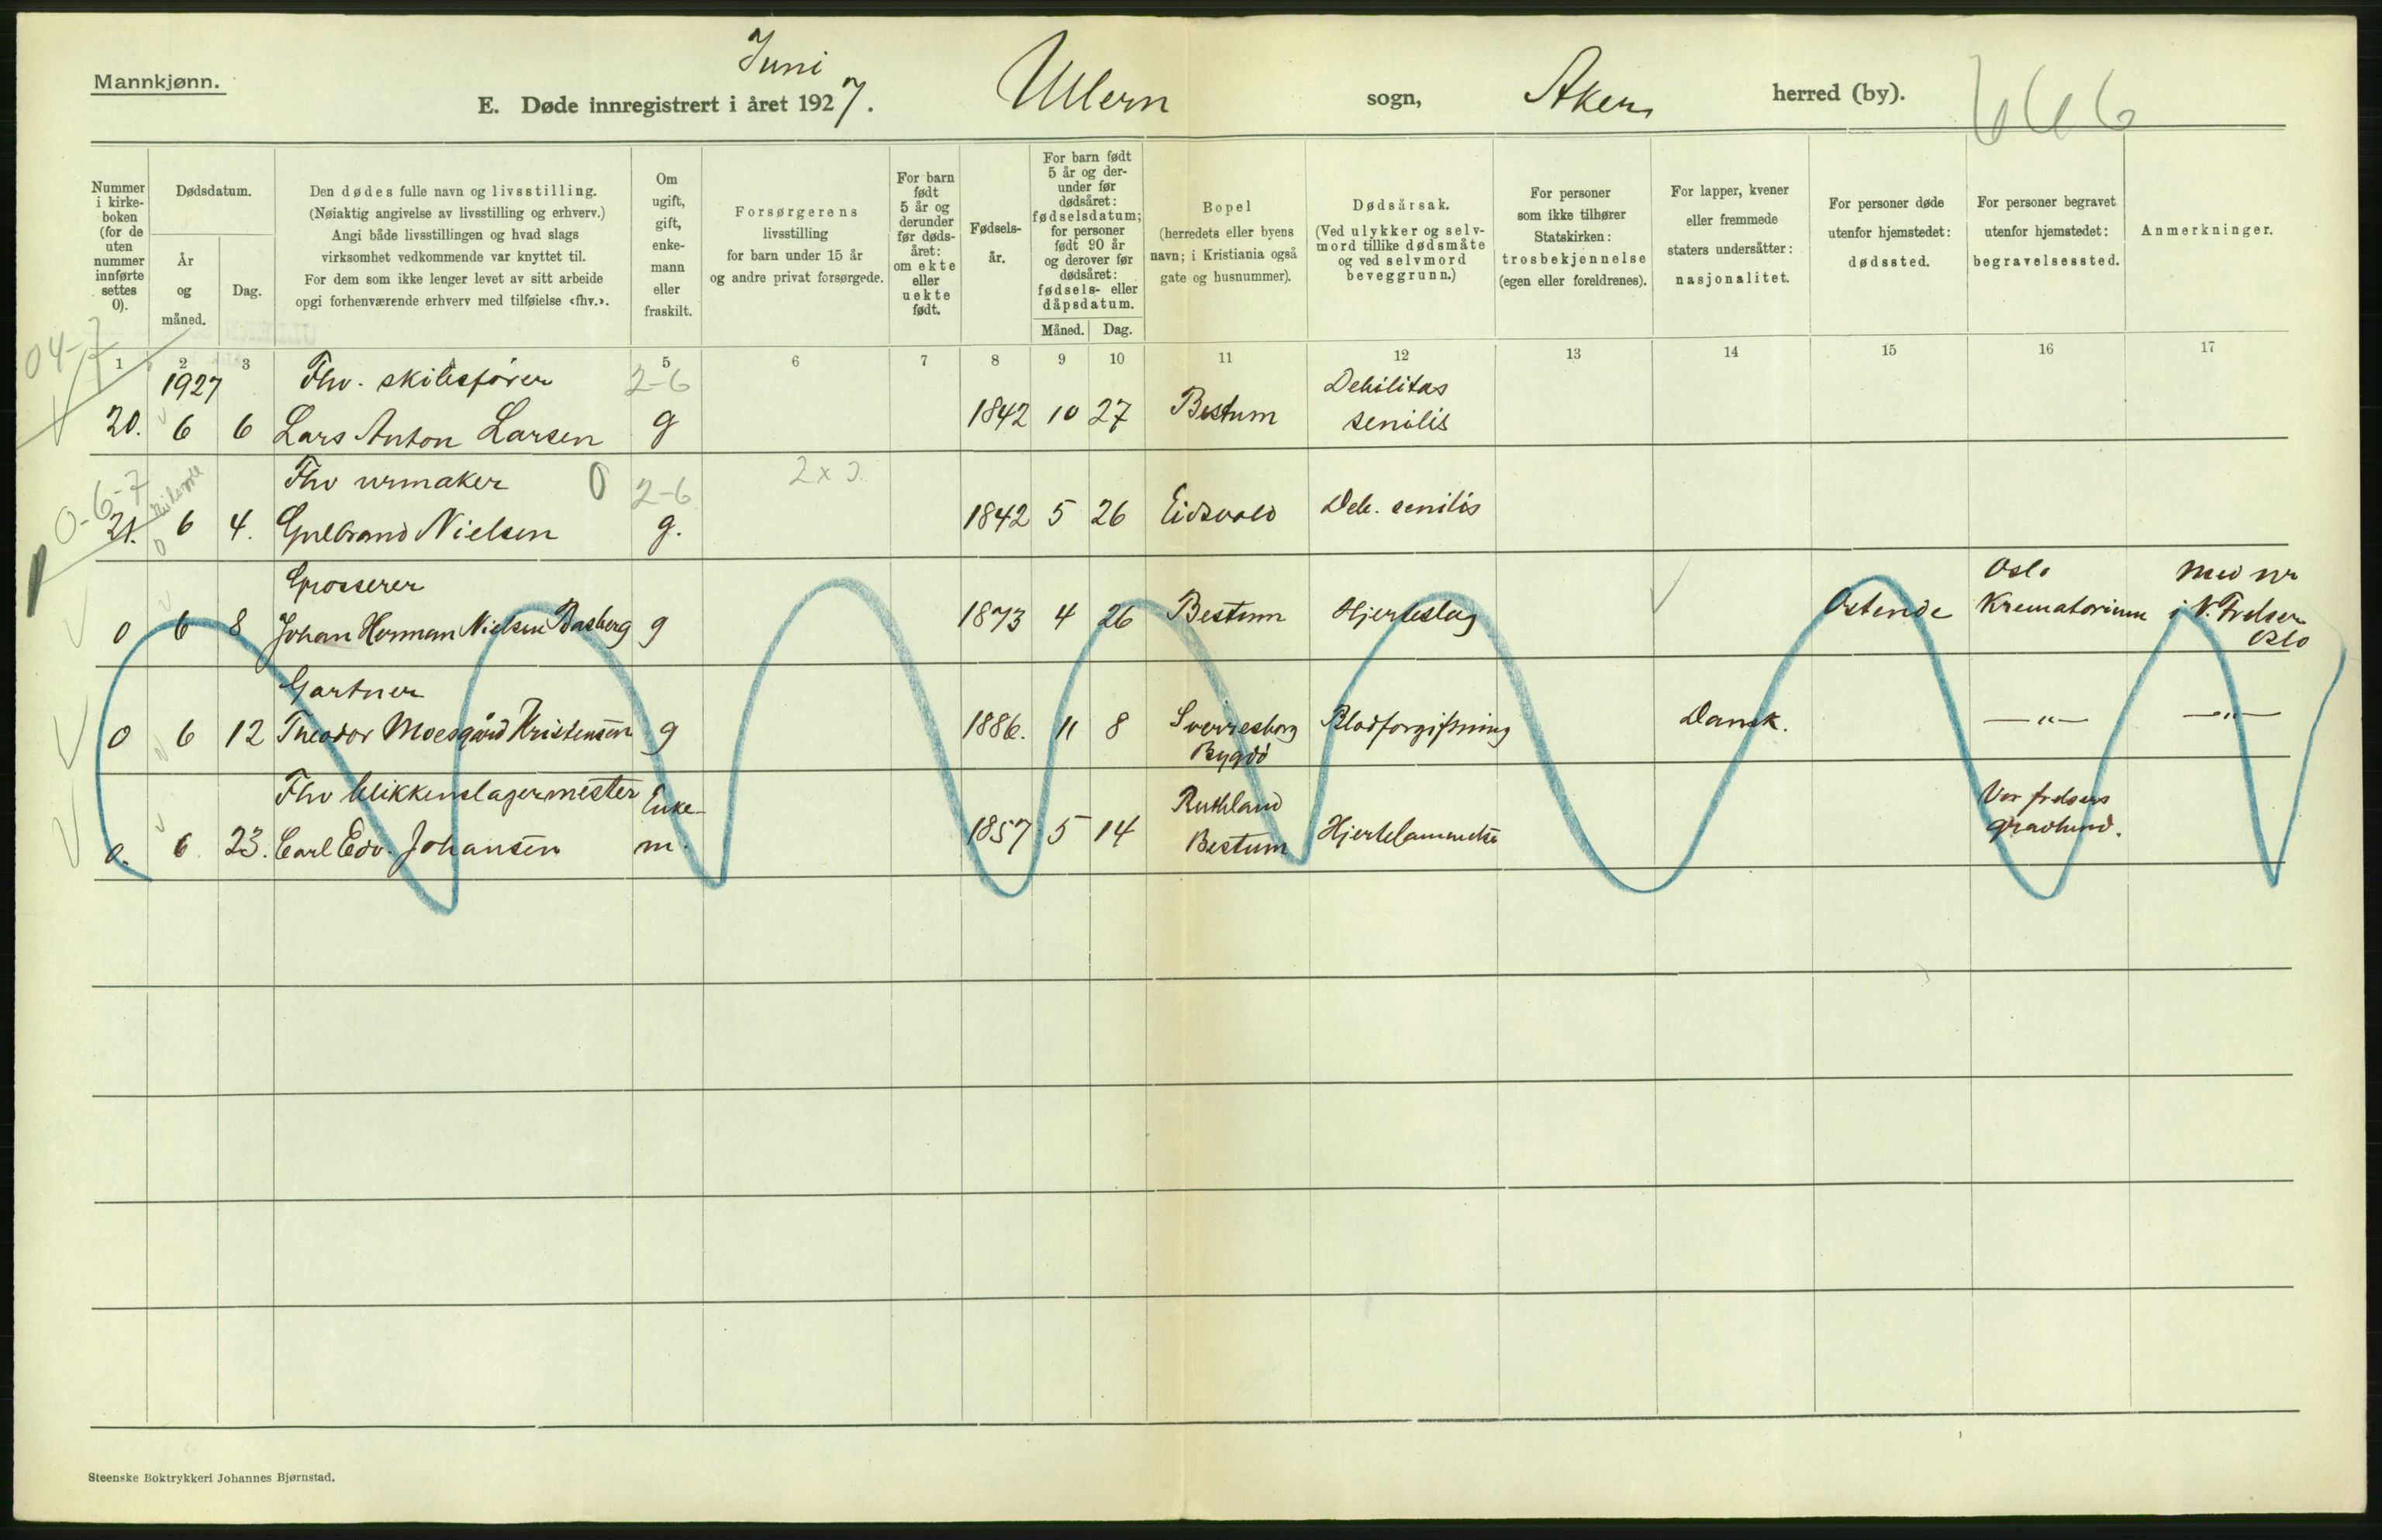 Juni
Mannkjønn.
E. Døde innregistrert i året 1927. Ullern sogn, Aker herred (by). 666
Nummer i kirke-boken (for de uten nummer innførte settes 0).
Dødsdatum.
År og måned.
Dag.
Den dødes fulle navn og livsstilling.
(Nøiaktig angivelse av livsstilling og erhverv.)
Angi både livsstillingen og hvad slags
virksomhet vedkommende var knyttet til.
For dem som ikke lenger levet av sitt arbeide
opgi forhenværende erhverv med tilføielse «fhv.».
Om ugift, gift, enke-mann eller fraskilt.
Forsørgerens
livsstilling
for barn under 15 år
og andre privat forsørgede.
For barn født 5 år og derunder før døds-året: om ekte eller uekte født.
Fødsels-år.
For barn født 5 år og der-under før dødsåret: fødselsdatum; for personer født 90 år og derover før dødsåret: fødsels- eller dåpsdatum.
Måned. Dag.
Bopel
(herredets eller byens
navn; i Kristiania også
gate og husnummer).
Dødsårsak.
(Ved ulykker og selv-
mord tillike dødsmåte
og ved selvmord
beveggrunn.)
For personer
som ikke tilhører
Statskirken:
trosbekjennelse
(egen eller foreldrenes).
For lapper, kvener
eller fremmede
staters undersåtter:
nasjonalitet.
For personer døde
utenfor hjemstedet:
dødssted.
For personer begravet
utenfor hjemstedet:
begravelsessted.
Anmerkninger.
04-7
1 2 3 5 6 7 8 9 10 11 12 13 14 15 16 17
1927 Fhv. skibsfører 2-6 Debilitas
20. 6 6 Lars Anton Larsen g 1842 10 27 Bestum senilis
0-6-7 Fhv urmaker 0 2-6
21. 6 4. Gulbrand Nielsen g. 1842 5 26 Eidsvold Deb. senilis
Grosserer Oslo Med nr
0 6 8 Johan Herman Nielsen Basberg g 1873 4 26 Bestum Hjerteslag Ostende Krematorium i V. Frelser
Oslo
Gartner
0 6 12 Theodor Moesgård Kristensen g 1886. 11 8 Sverresborg Blodforgiftning Dansk. —"— —"—
Bygdö
Fhv blikkenslagermester Enke- Ruthland Vor frelsers
0. 6. 23. Carl Edv. Johansen m. 1857 5 14 Bestum Hjertelammelse gravlund.
Steenske Boktrykkeri Johannes Bjørnstad.